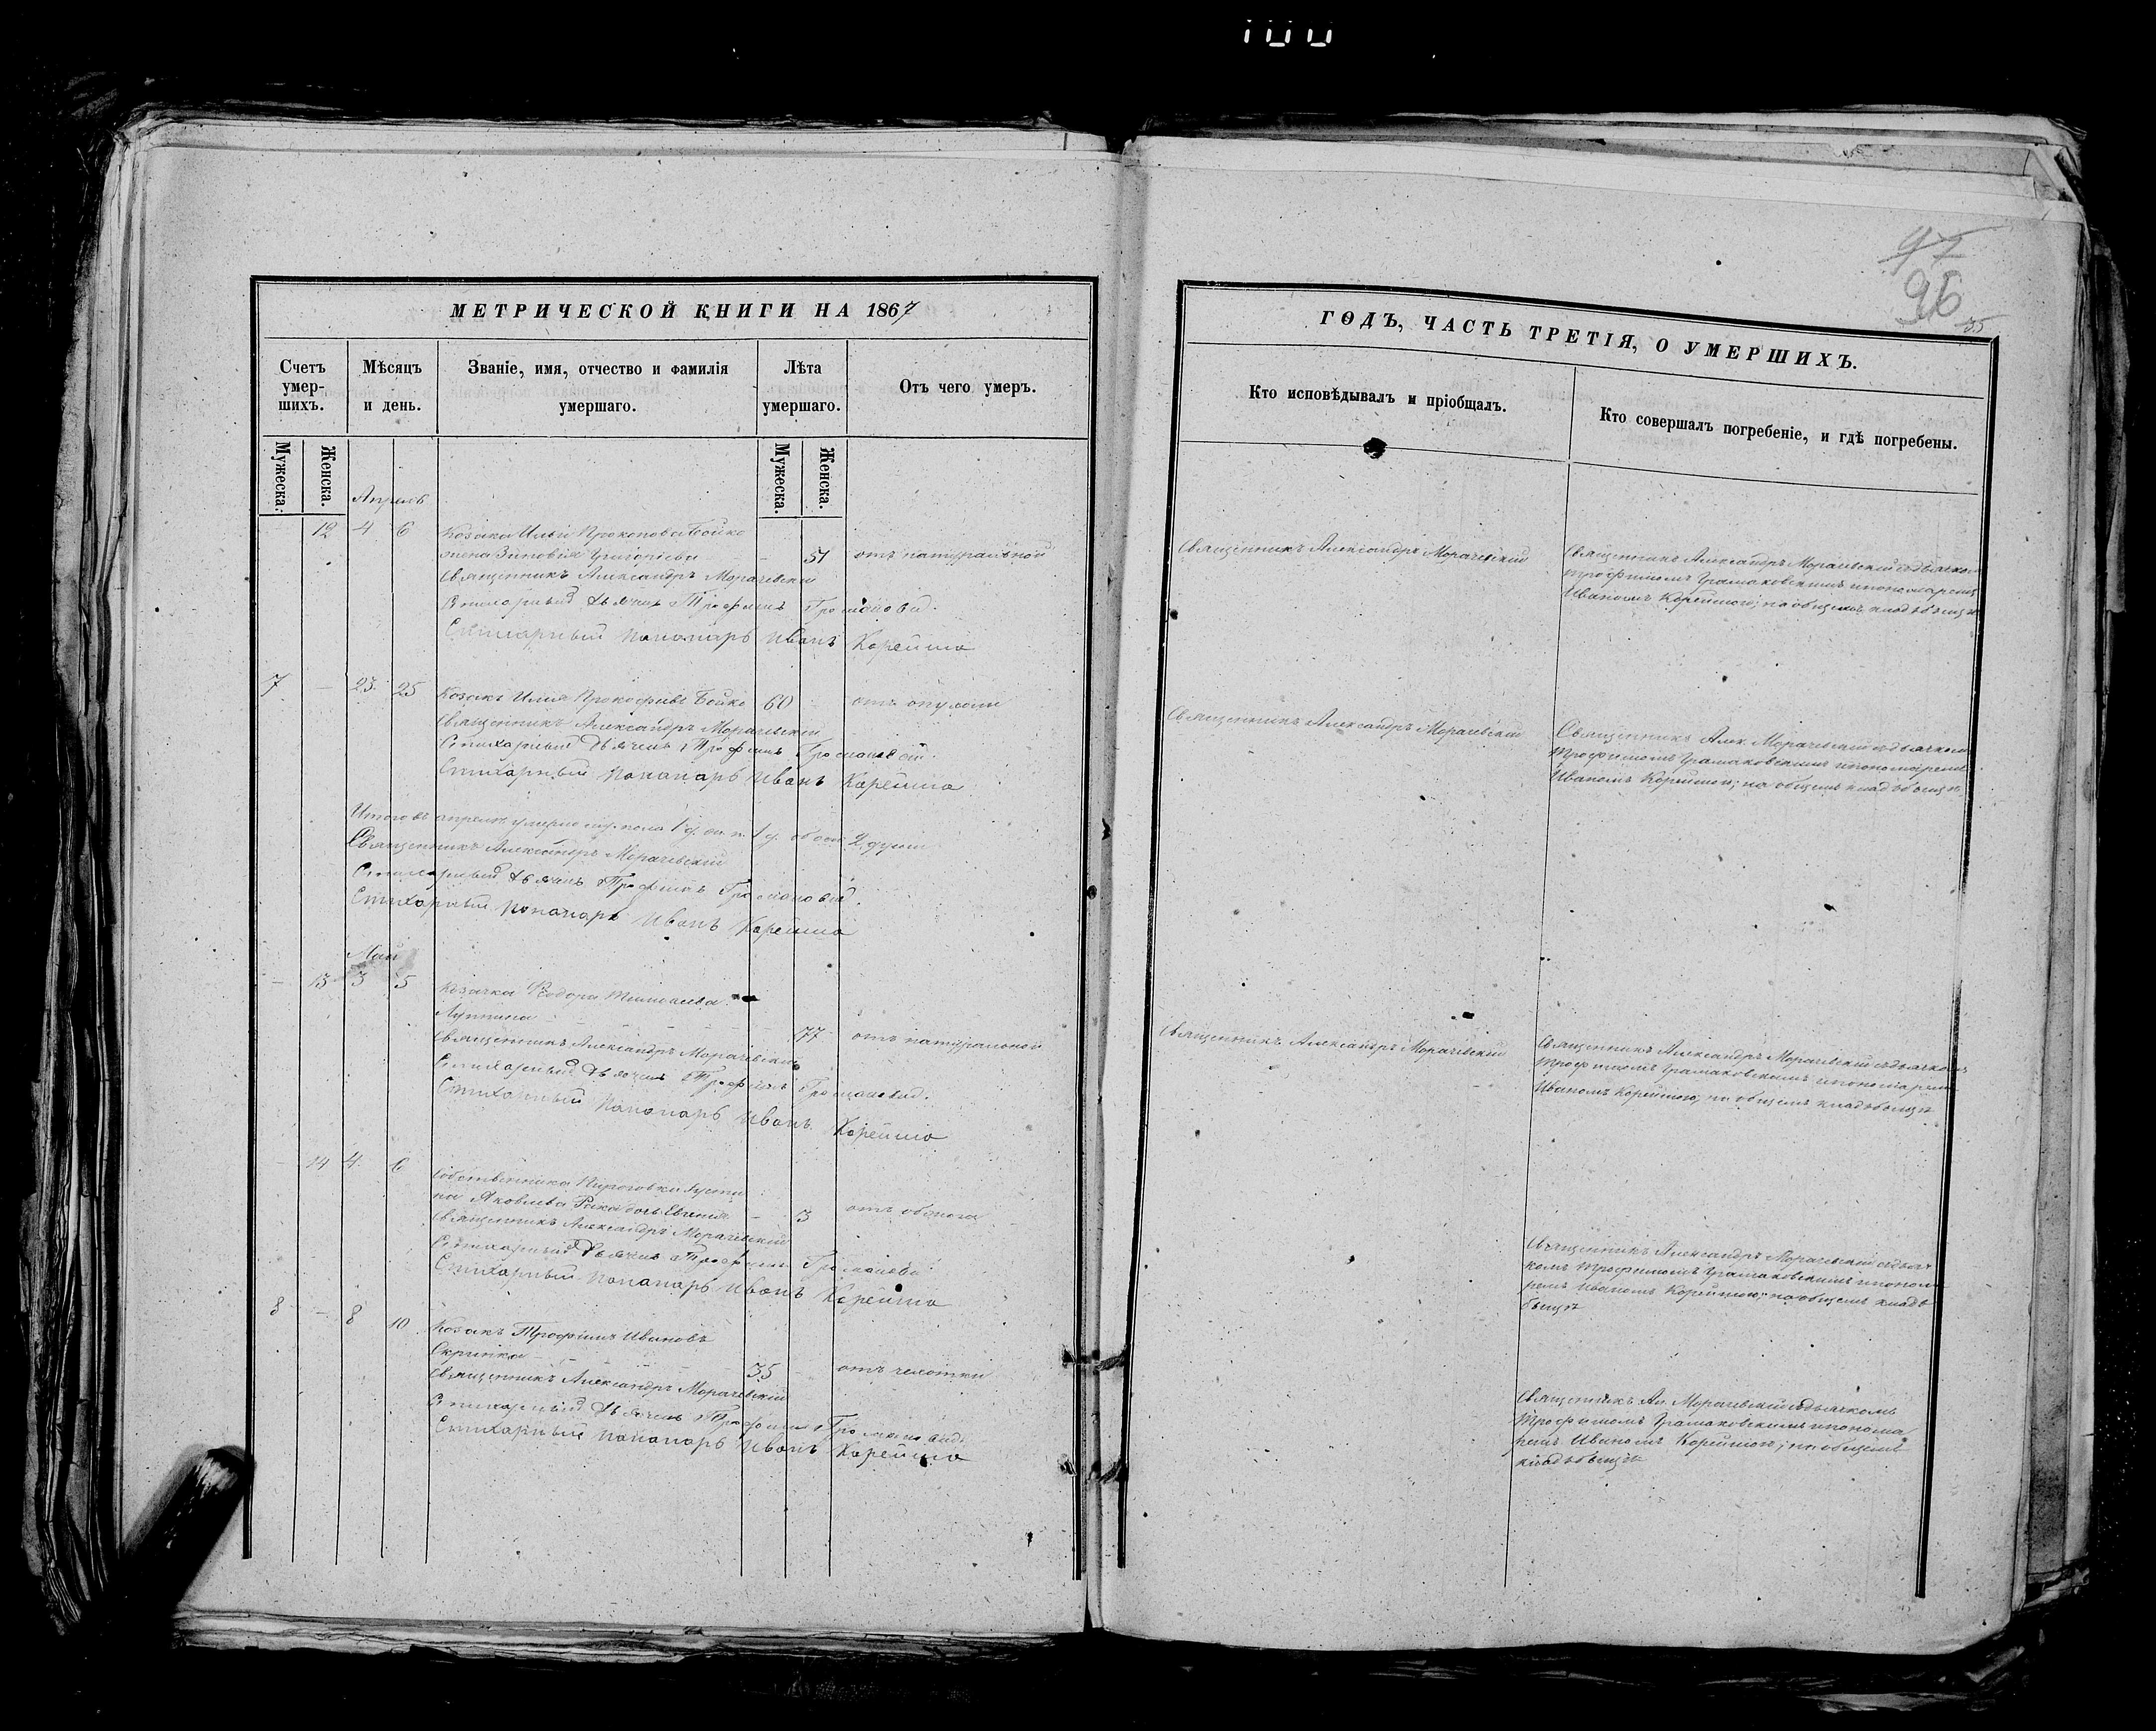 100
97
96
35
МЕТРИЧЕСКОЙ КНИГИ НА 1867
Счетъ умер-
шихъ.
Мѣсяцъ
и день.
Званіе, имя, отчество и фамилія
умершаго.
Лѣта
умершаго.
Отъ чего умеръ.
Мужеска.
Женска.
Мужеска.
Женска.
Апрель
12 4 6 Козака Ильи Прокопова Бойко
жена Зиновія Григорьева – 51 отъ натуральной
Священникъ Александръ Морачевскій
Стихарный дьячекъ Трофимъ
Стихарный пономарь Иванъ Корейша
7 – 23 25 Козакъ Илья Прокофьевъ Бойко 60 отъ опухоли
Священникъ Александръ Морачевскій
Стихарный дьячекъ Трофимъ
Стихарный пономарь Иванъ Корейша
Итого въ апрелѣ умерло муж. пола 1 ж. п. 1 обоего 2 души
Священникъ Александръ Морачевскій
Стихарный дьячекъ Трофимъ
Стихарный пономарь Иванъ Корейша
Май
– 13 3 5 Козачка Феодора
77 отъ натуральной
Священникъ Александръ Морачевскій
Стихарный дьячекъ Трофимъ
Стихарный пономарь Иванъ Корейша
– 14 4 6 Собственника
Яковлева дочь Евгенія – 3
Священникъ Александръ Морачевскій
Стихарный дьячекъ Трофимъ
Стихарный пономарь Иванъ Корейша
8 – 8 10 Козакъ Трофимъ Ивановъ
Скрипка 35 отъ чахотки
Священникъ Александръ Морачевскій
Стихарный дьячекъ Трофимъ
Стихарный пономарь Иванъ Корейша
ГОДЪ, ЧАСТЬ ТРЕТІЯ, О УМЕРШИХЪ.
Кто исповѣдывалъ и пріобщалъ.
Кто совершалъ погребеніе, и гдѣ погребены.
Священникъ Александръ Морачевскій
Священникъ Александръ Морачевскій съ дьячкомъ
Трофимомъ Грамаковскимъ и пономаремъ
Иваномъ Корейшою; на общемъ кладбищѣ
Священникъ Александръ Морачевскій
Священникъ Алек. Морачевскій съ дьячкомъ
Трофимомъ Грамаковскимъ и пономаремъ
Иваномъ Корейшою; на общемъ кладбищѣ
Священникъ Александръ Морачевскій
Священникъ Александръ Морачевскій съ дьячкомъ
Трофимомъ Грамаковскимъ и пономаремъ
Иваномъ Корейшою; на общемъ кладбищѣ
Священникъ Александръ Морачевскій съ дьяч
комъ Трофимомъ Грамаковскимъ и понома
ремъ Иваномъ Корейшою; на общемъ клад
бищѣ
Священникъ Ал. Морачевскій съ дьячкомъ
Трофимомъ Грамаковскимъ и понома
ремъ Иваномъ Корейшою; на общемъ
кладбищѣ